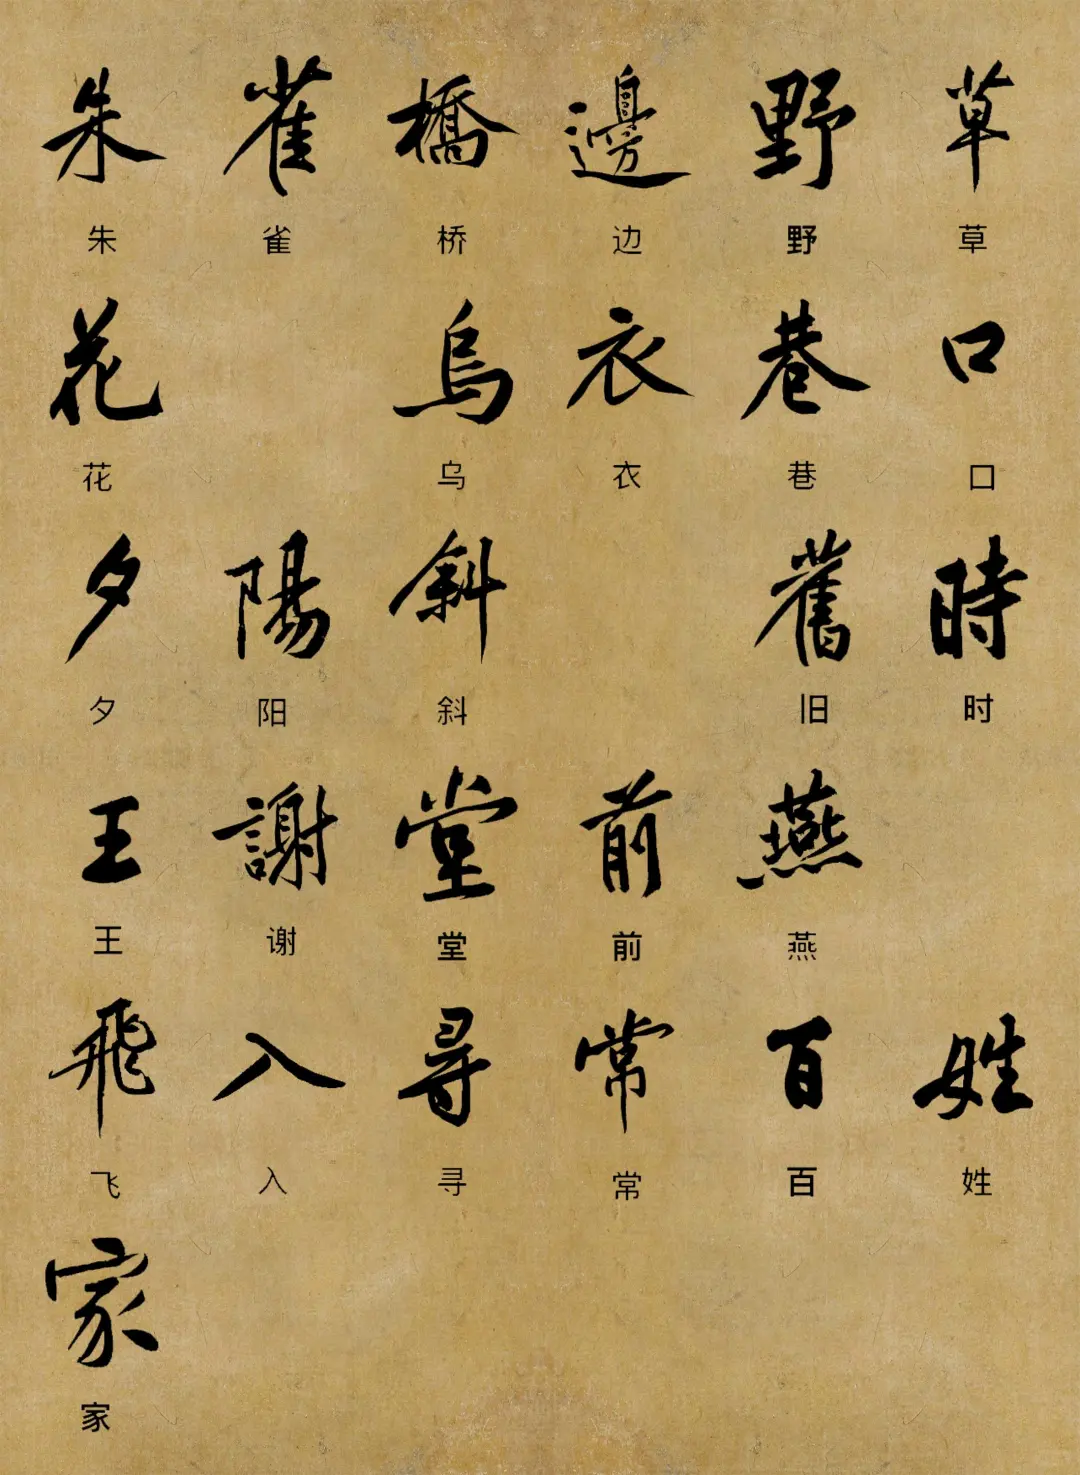 朱 雀 橋 邊 野 草
朱 雀 桥 边 野 草
花 烏 衣 巷 口
花 乌 衣 巷 口
夕 陽 斜 舊 時
夕 阳 斜 旧 时
王 謝 堂 前 燕
王 谢 堂 前 燕
飛 入 尋 常 百 姓
飞 入 寻 常 百 姓
家
家